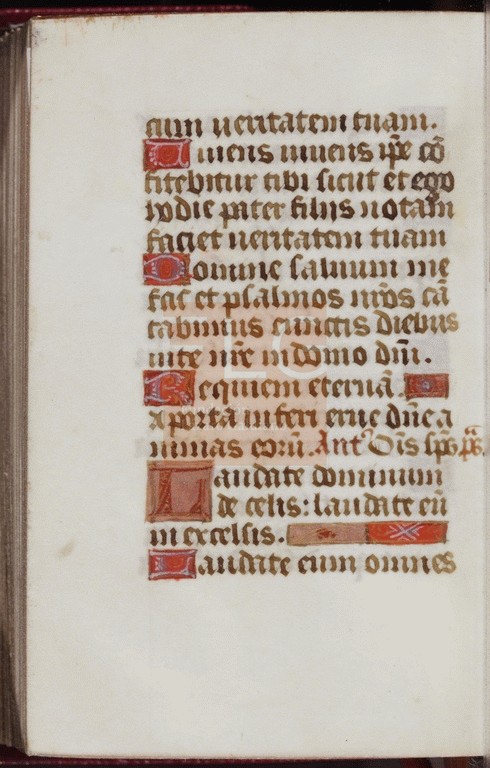 cum ueritatem tuam.
Uiuens uiuens ip̄e cō
fitebitur tibi sicut et ego
hodie pater filijs notam
faciet ueritatem tuam
Domine saluum me
fac et psalmos nr̄os cā
tabimus cunctis diebus
uite nr̄e in domo dn̄i.
Requiem eternā.
A porta inferi erue dn̄e a
nimas eorū. Ant Oīs sp̄s ps̄.
Laudate dominum
de celis: laudate eū
in excelsis.
Laudate eum omnes